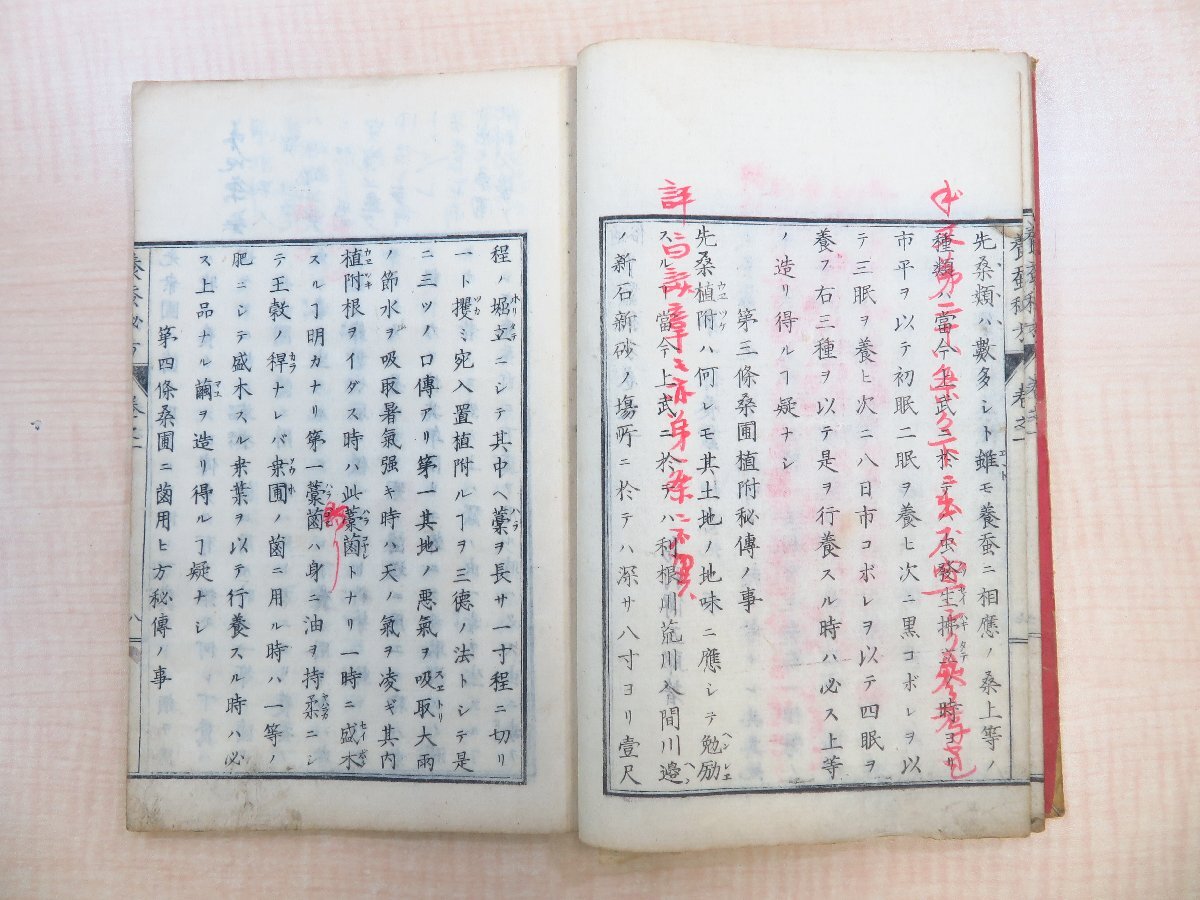 先桑類ハ數多シト雖モ養蚕ニ相應ノ桑上等ノ
種類ハ當今上武ニ於テハ蚕發生掃立時ヨリ
市平ヲ以テ初眠二眠ヲ養ヒ次ニ黒コボレヲ以
テ三眠ヲ養ヒ次ニ八日市コボレヲ以テ四眠ヲ
養フ右三種ヲ以テ是ヲ行養スル時ハ必ス上等
ノ造リ得ルヿ疑ナシ
第三條桑圃植附秘傳ノ事
先桑植附ハ何レモ其土地ノ地味ニ應シテ勉励
スルヿ當今上武ニ於テハ利根川荒川入間川邉
ノ新石新砂ノ塲所ニ於テハ深サ八寸ヨリ壹尺
養蚕秘方 卷之一
程ノ堀立ニシテ其中ヘ藁ヲ長サ一寸程ニ切リ
一ト攫ミ宛入置植附ルヿヲ三德ノ法トシテ是
ニ三ツノ口傳アリ第一其地ノ悪氣ヲ吸取大雨
ノ節水ヲ吸取暑氣强キ時ハ天ノ氣ヲ凌ギ其内
植附根ヲイダス時ハ此藁菌トナリ一時ニ盛木
スルヿ明カナリ第一藁菌ハ身ニ油ヲ持柔ニシ
テ王穀ノ稈ナレバ桒圃ノ菌ニ用ル時ハ一等ノ
肥ニシテ盛木スル桒葉ヲ以テ行養スル時ハ必
ス上品ナル繭ヲ造リ得ルヿ疑ナシ
第四條桑圃ニ菌用ヒ方秘傳ノ事